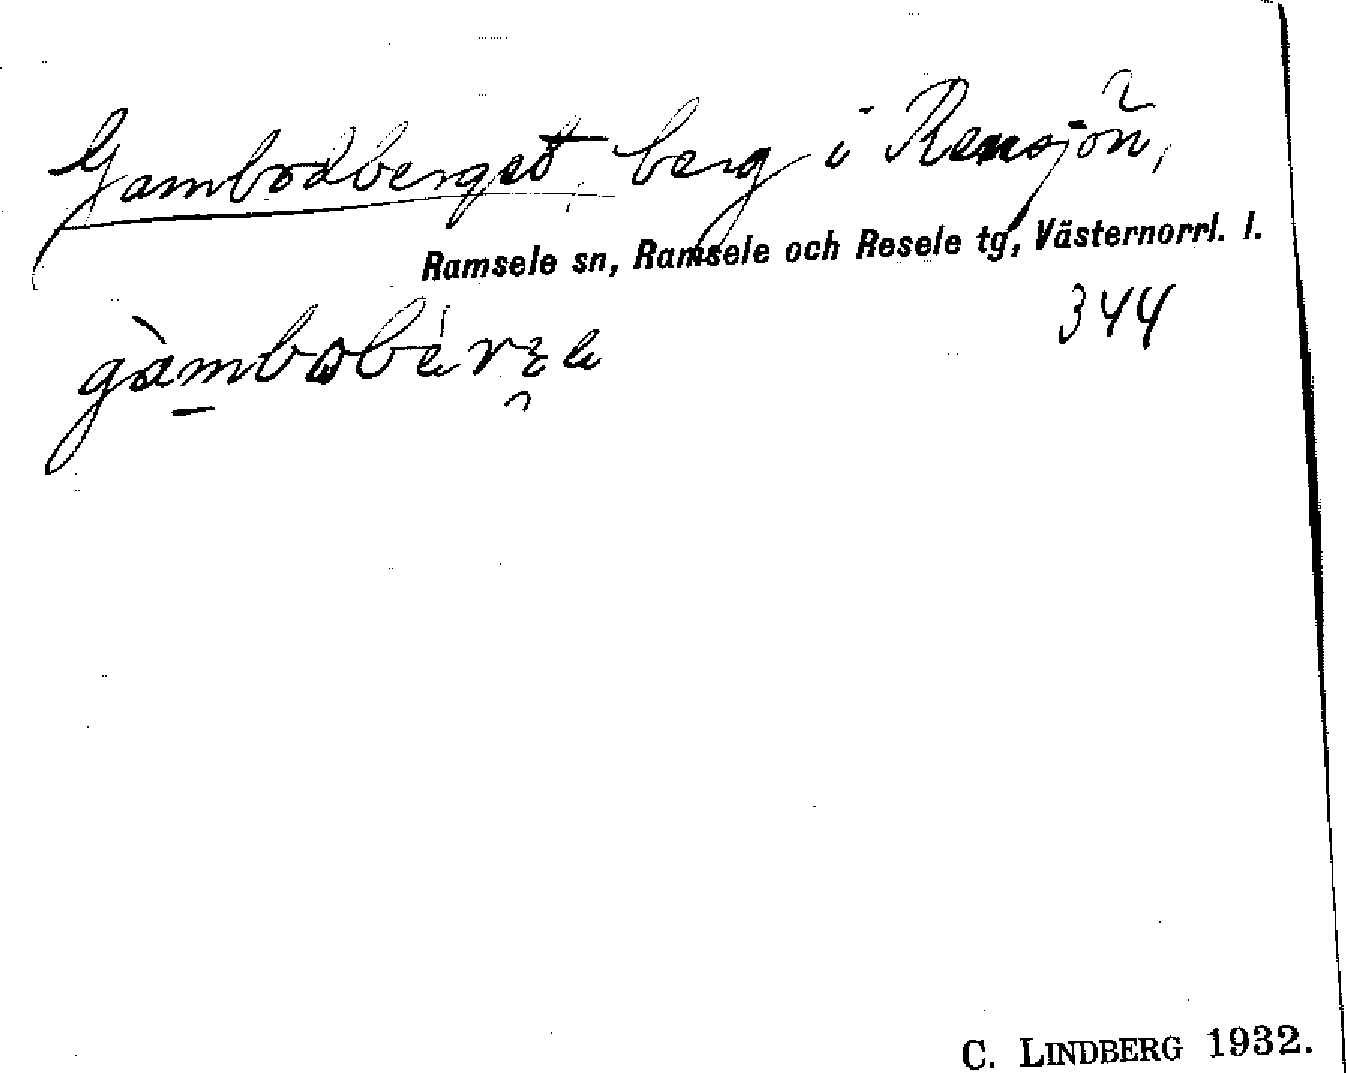 Gambodberget, berg i Rensjön,
Ramsele sn, Ramsele och Resele tg, Västernorrl. l.
344
C. LINDBERG 1932.